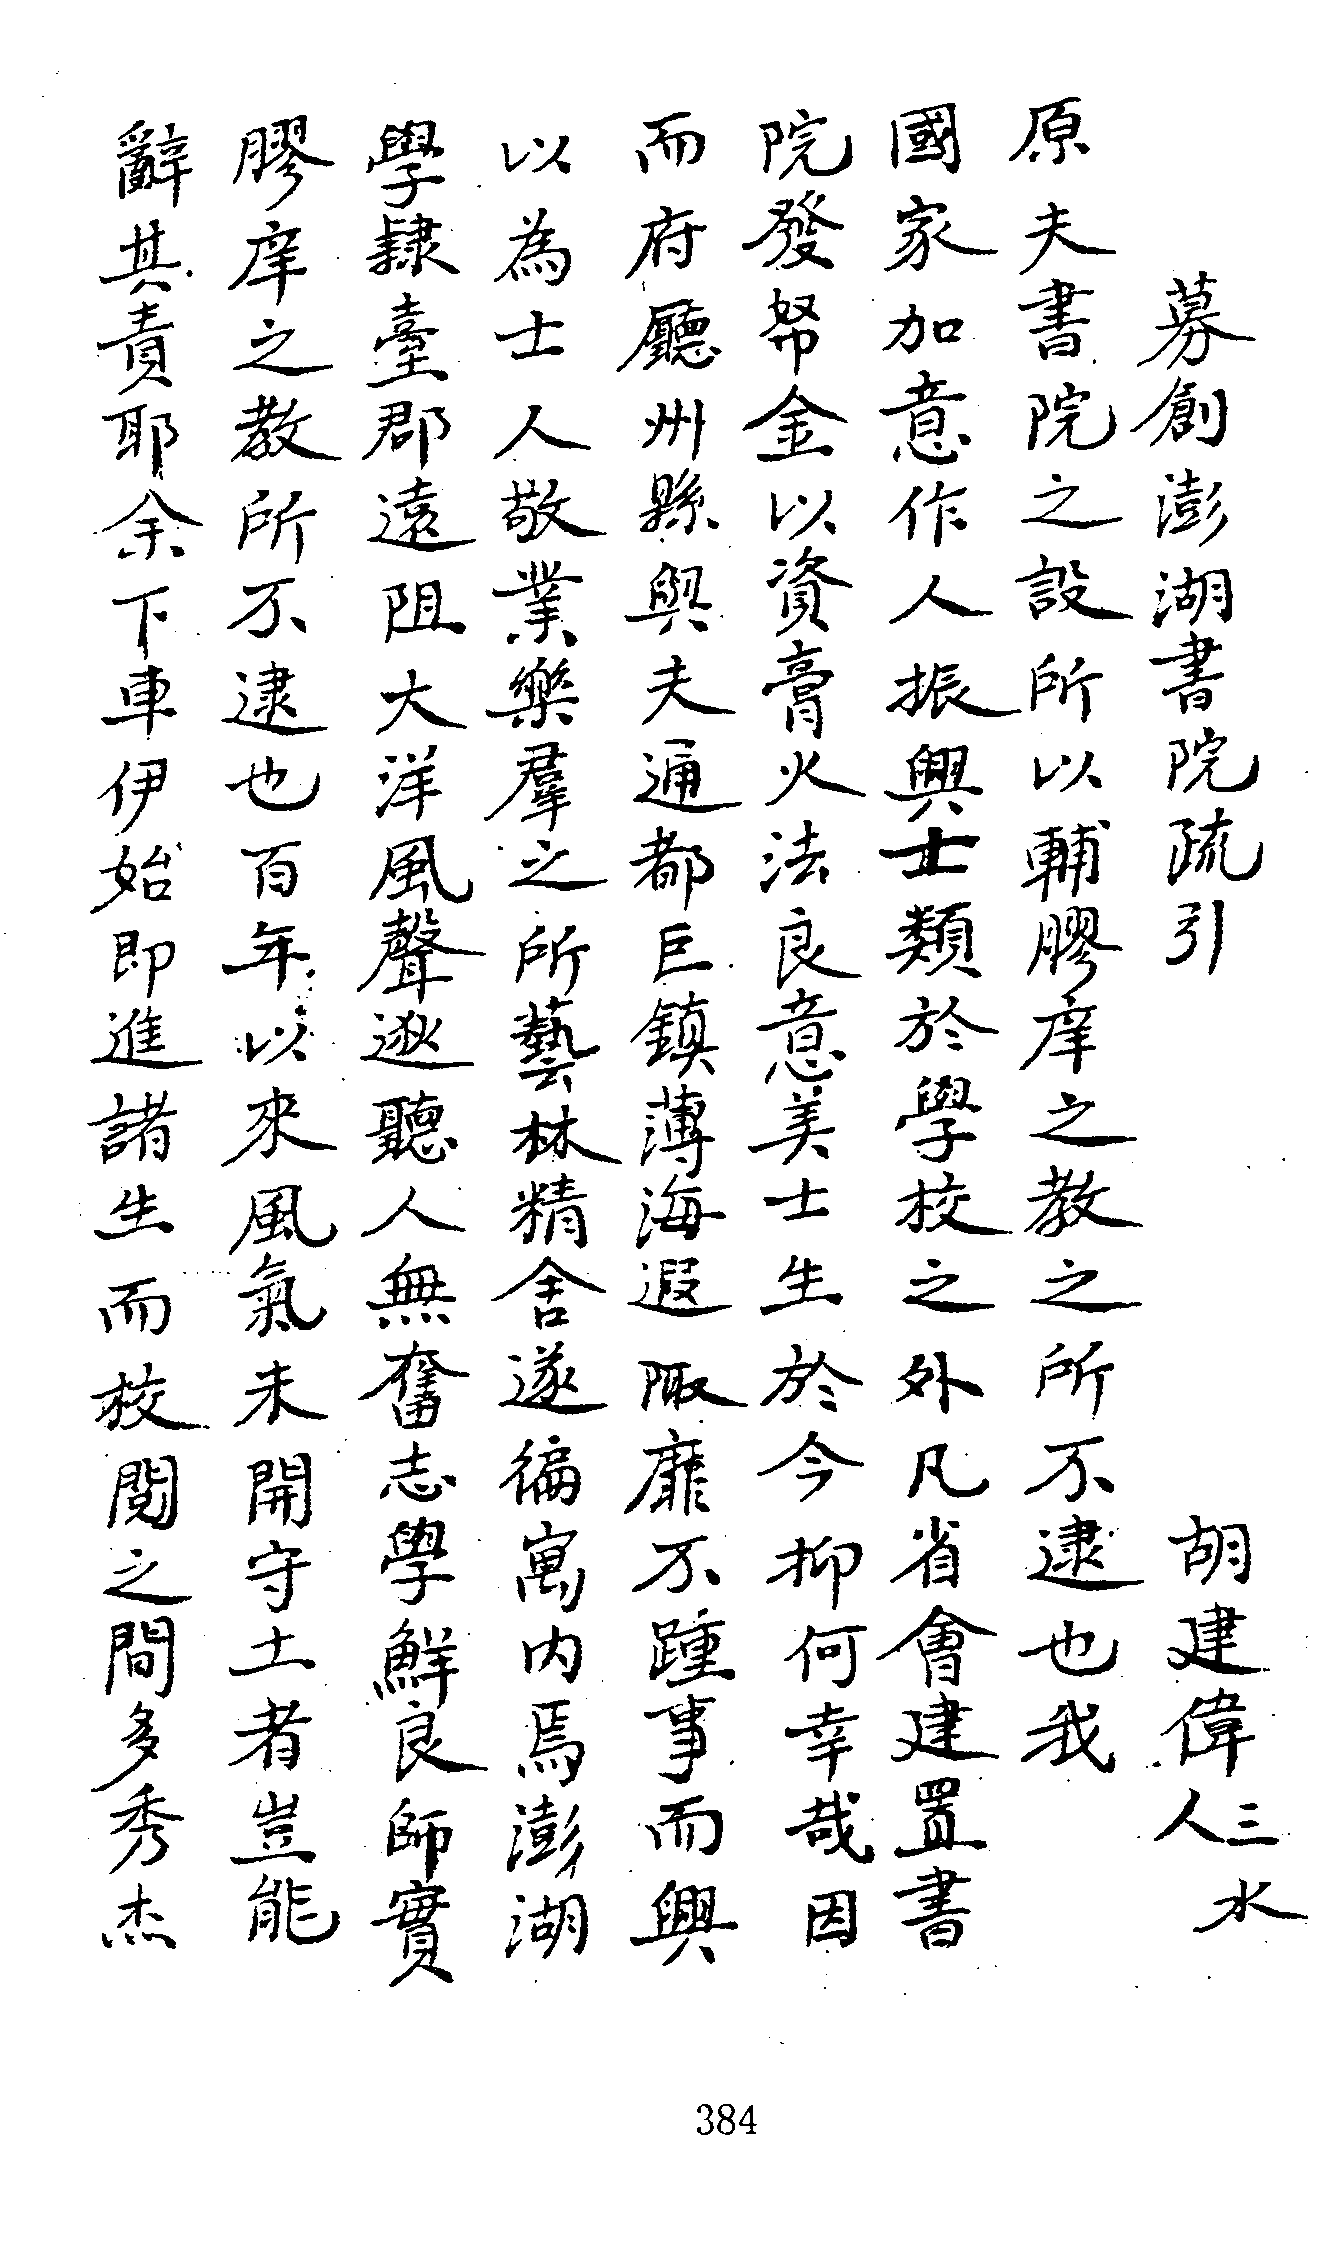 募創澎湖書院疏引
胡建偉三水人
原夫書院之設所以輔膠庠之教之所不逮也我
國家加意作人振興士類於學校之外凡省會建置書
院發帑金以資膏火法良意美士生於今抑何幸哉因
而府廳州縣與夫通都巨鎮薄海遐陬靡不踵事而興
以為士人敬業樂羣之所藝林精舍遂徧寓內焉澎湖
學隸臺郡遠阻大洋風聲逖聽人無奮志學鮮良師實
膠庠之教所不逮也百年以來風氣未開守土者豈能
辭其責耶余下車伊始即進諸生而校閱之間多秀杰
384